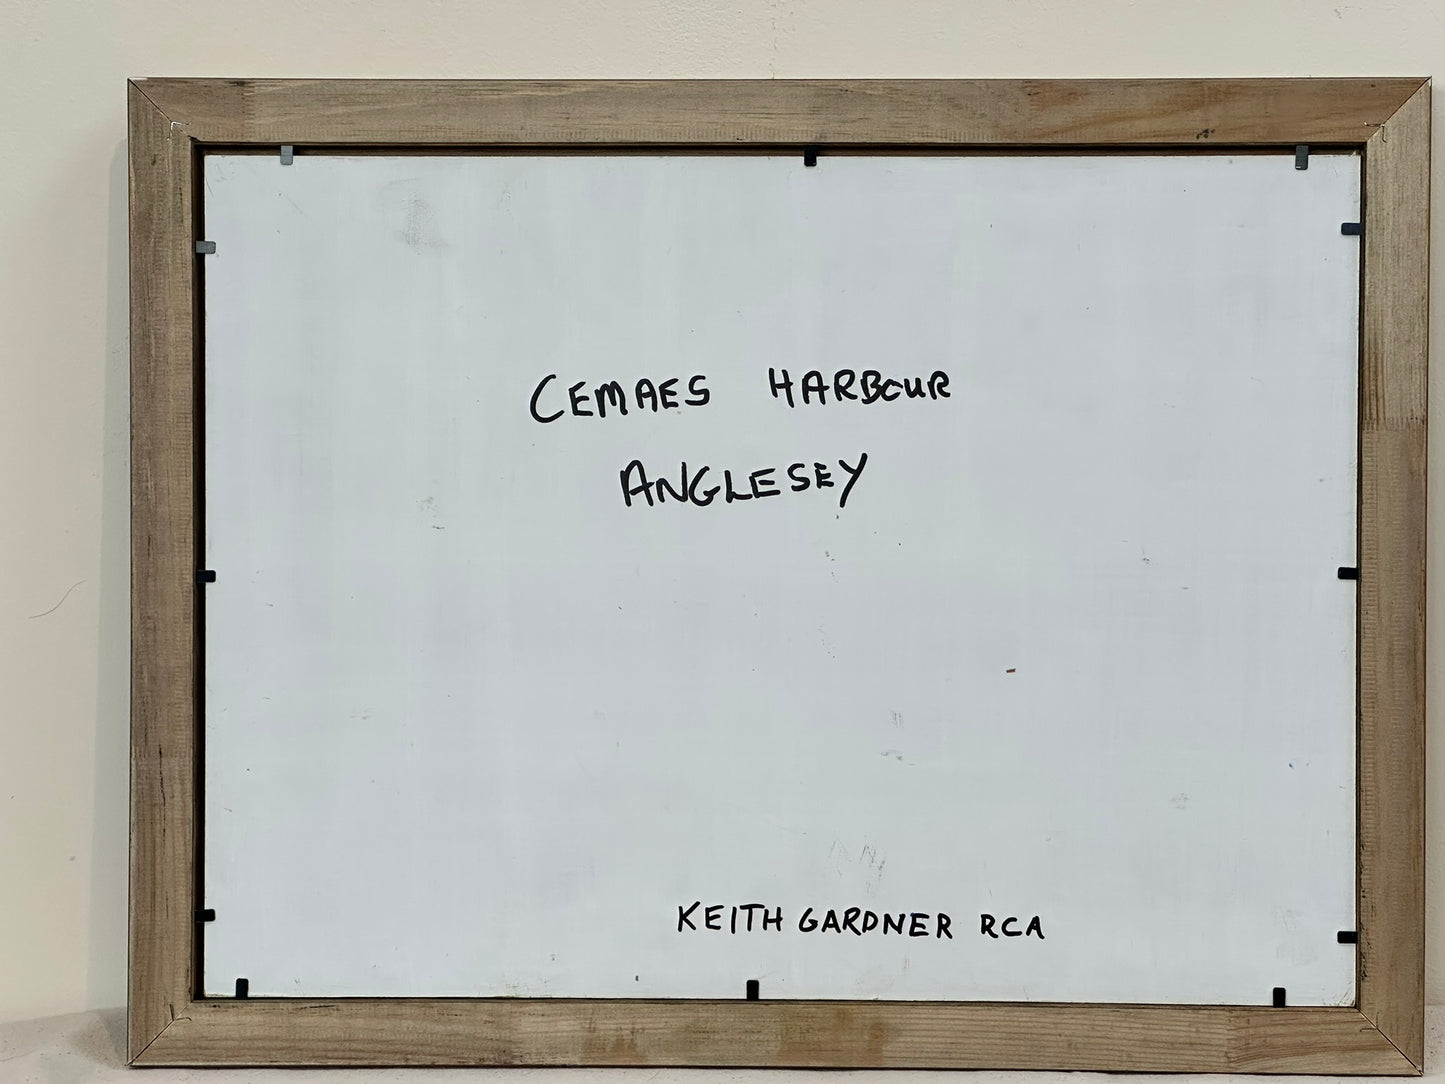 CEMAES HARBOUR
ANGLESEY
KEITH GARDNER RCA